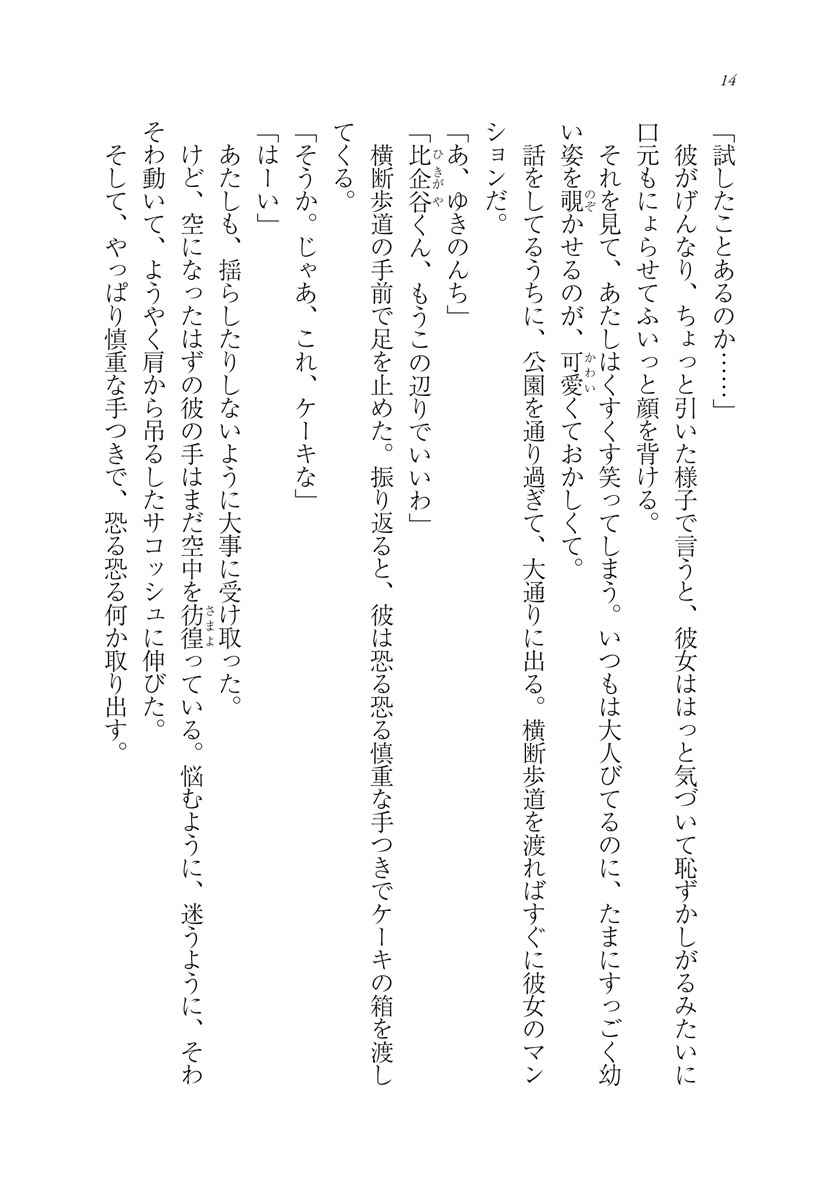 14
「試したことあるのか……」
彼がげんなり、ちょっと引いた様子で言うと、彼女ははっと気づいて恥ずかしがるみたいに
口元もにょらせてふいっと顔を背ける。
それを見て、あたしはくすくす笑ってしまう。いつもは大人びてるのに、たまにすっごく幼
い姿を覗かせるのが、可愛くておかしくて。
話をしてるうちに、公園を通り過ぎて、大通りに出る。横断歩道を渡ればすぐに彼女のマン
ションだ。
「あ、ゆきのんち」
「比企谷くん、もうこの辺りでいいわ」
横断歩道の手前で足を止めた。振り返ると、彼は恐る恐る慎重な手つきでケーキの箱を渡し
てくる。
「そうか。じゃあ、これ、ケーキな」
「はーい」
あたしも、揺らしたりしないように大事に受け取った。
けど、空になったはずの彼の手はまだ空中を彷徨っている。悩むように、迷うように、そわ
そわ動いて、ようやく肩から吊るしたサコッシュに伸びた。
そして、やっぱり慎重な手つきで、恐る恐る何か取り出す。